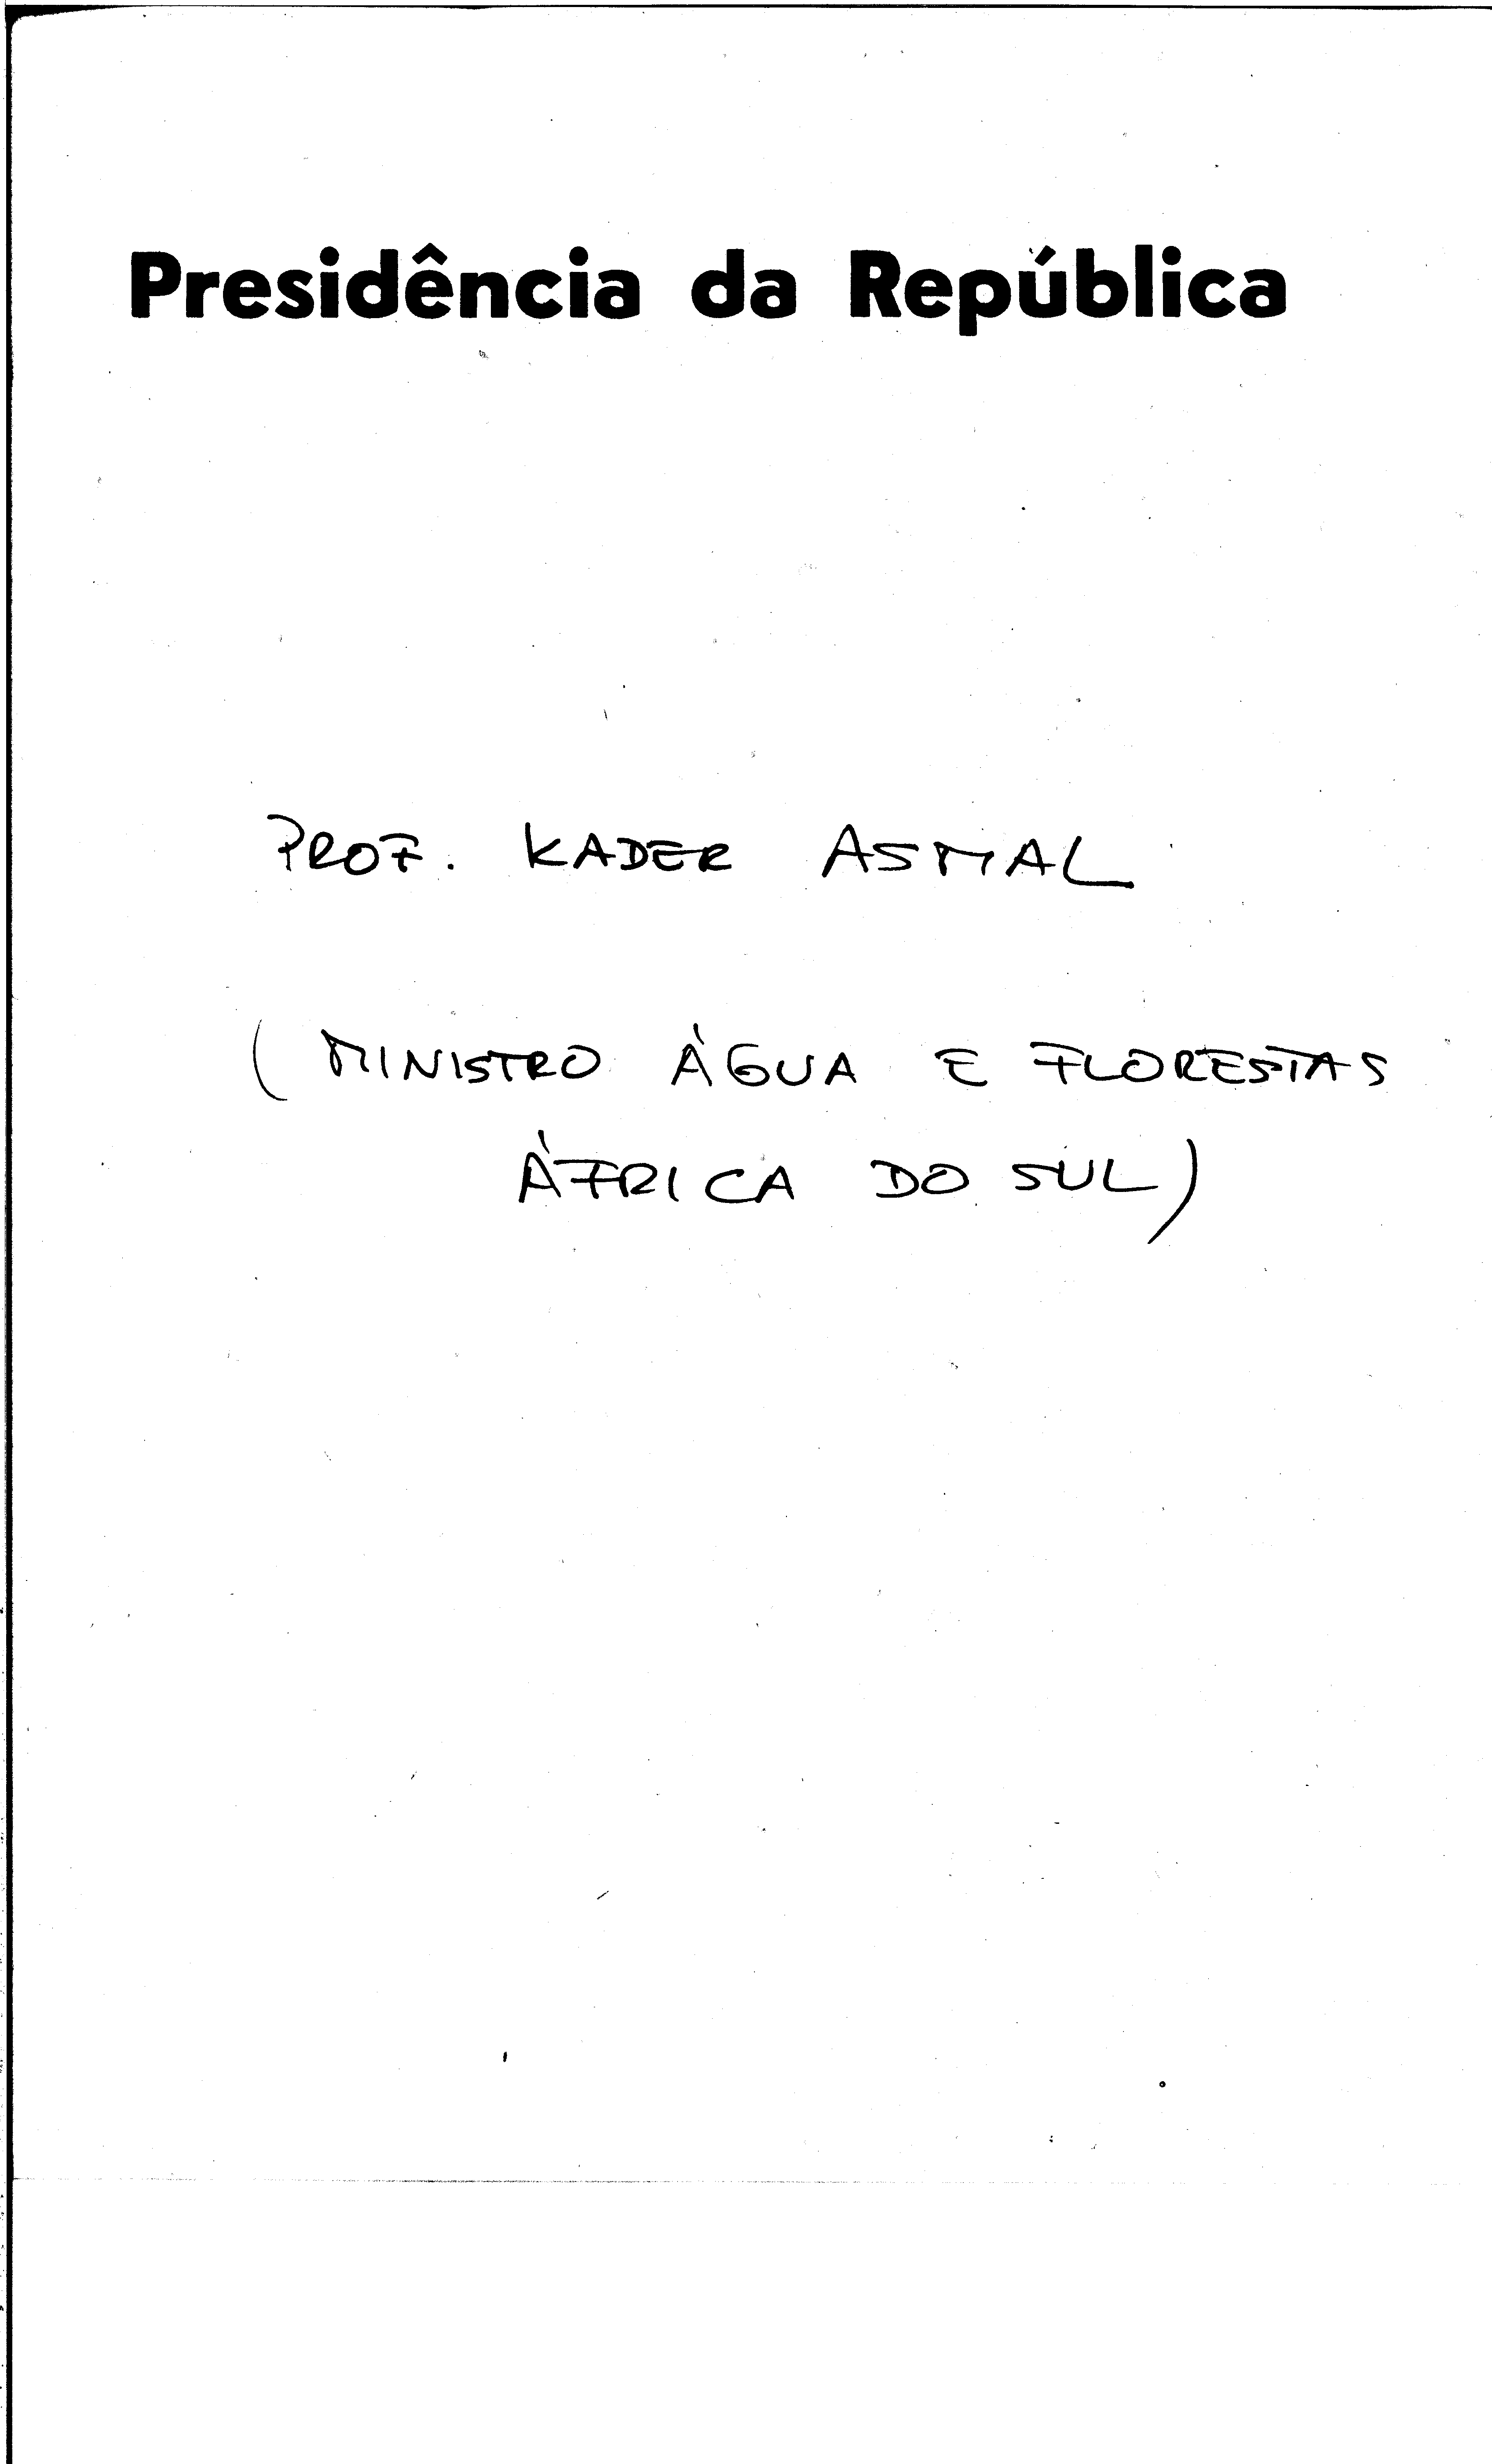 Presidência da República
PROF. KADER ASMAL
( MINISTRO ÀGUA E FLORESTAS
ÀFRICA DO SUL )